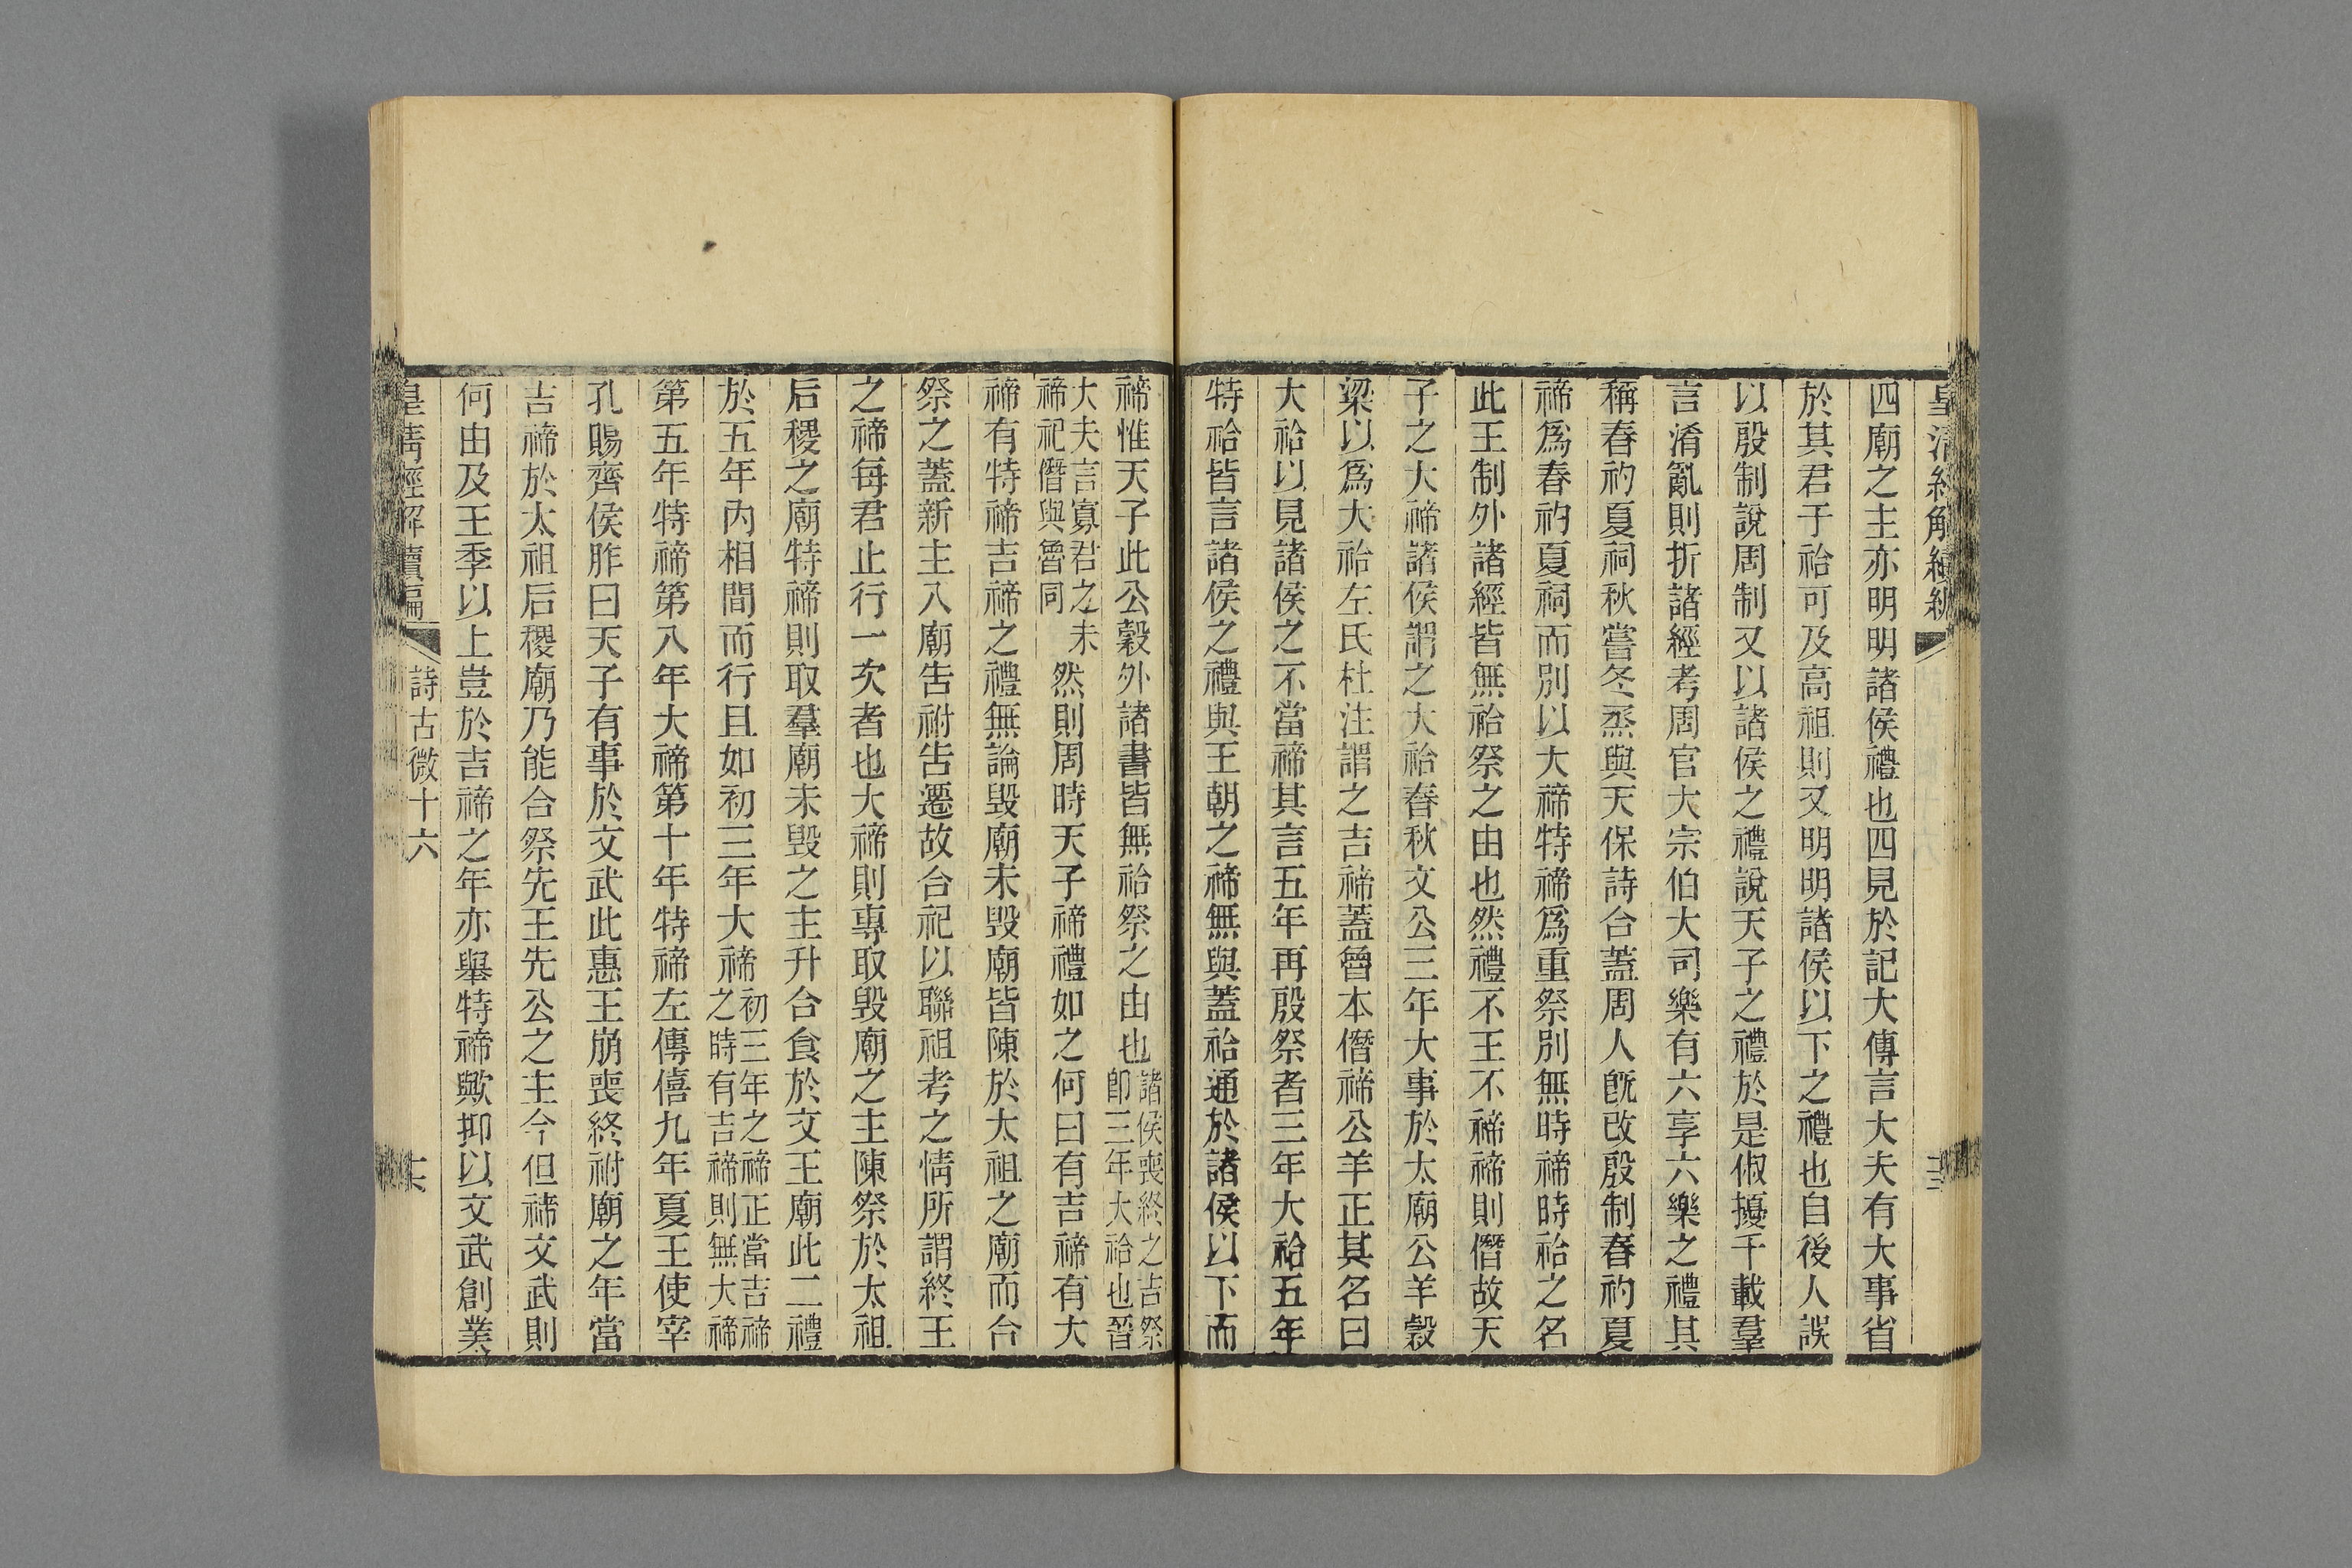 皇清經解續編
四廟之主亦明明諸侯禮也四見於記大傳言大夫有大事省
於其君于祫可及高祖則又明明諸侯以下之禮也自後人誤
以殷制說周制又以諸侯之禮說天子之禮於是俶擾千載羣
言淆亂則折諸經考周官大宗伯大司樂有六享六樂之禮其
稱春礿夏祠秋嘗冬烝與天保詩合蓋周人旣改殷制春礿夏
禘爲春礿夏祠而別以大禘特禘爲重祭別無時禘時祫之名
此王制外諸經皆無祫祭之由也然禮不王不禘禘則僭故天
子之大禘諸侯謂之大祫春秋文公三年大事於太廟公羊穀
梁以爲大祫左氏杜注謂之吉禘蓋魯本僭禘公羊正其名曰
大祫以見諸侯之不當禘其言五年再殷祭者三年大祫五年
特祫皆言諸侯之禮與王朝之禘無與蓋祫通於諸侯以下而
禘惟天子此公穀外諸書皆無祫祭之由也諸侯喪終之吉祭卽三年大祫也晉
大夫言寡君之未禘祀僭與魯同然則周時天子禘禮如之何曰有吉禘有大
禘有特禘吉禘之禮無論毀廟未毀廟皆陳於太祖之廟而合
祭之蓋新主入廟告祔告遷故合祀以聯祖考之情所謂終王
之禘每君止行一次者也大禘則專取毀廟之主陳祭於太祖
后稷之廟特禘則取羣廟未毀之主升合食於文王廟此二禮
於五年內相間而行且如初三年大禘初三年之禘正當吉禘之時有吉禘則無大禘
第五年特禘第八年大禘第十年特禘左傳僖九年夏王使宰
孔賜齊侯胙曰天子有事於文武此惠王崩喪終祔廟之年當
吉禘於太祖后稷廟乃能合祭先王先公之主今但禘文武則
何由及王季以上豈於吉禘之年亦舉特禘歟抑以文武創業
皇清經解續編 詩古微十六